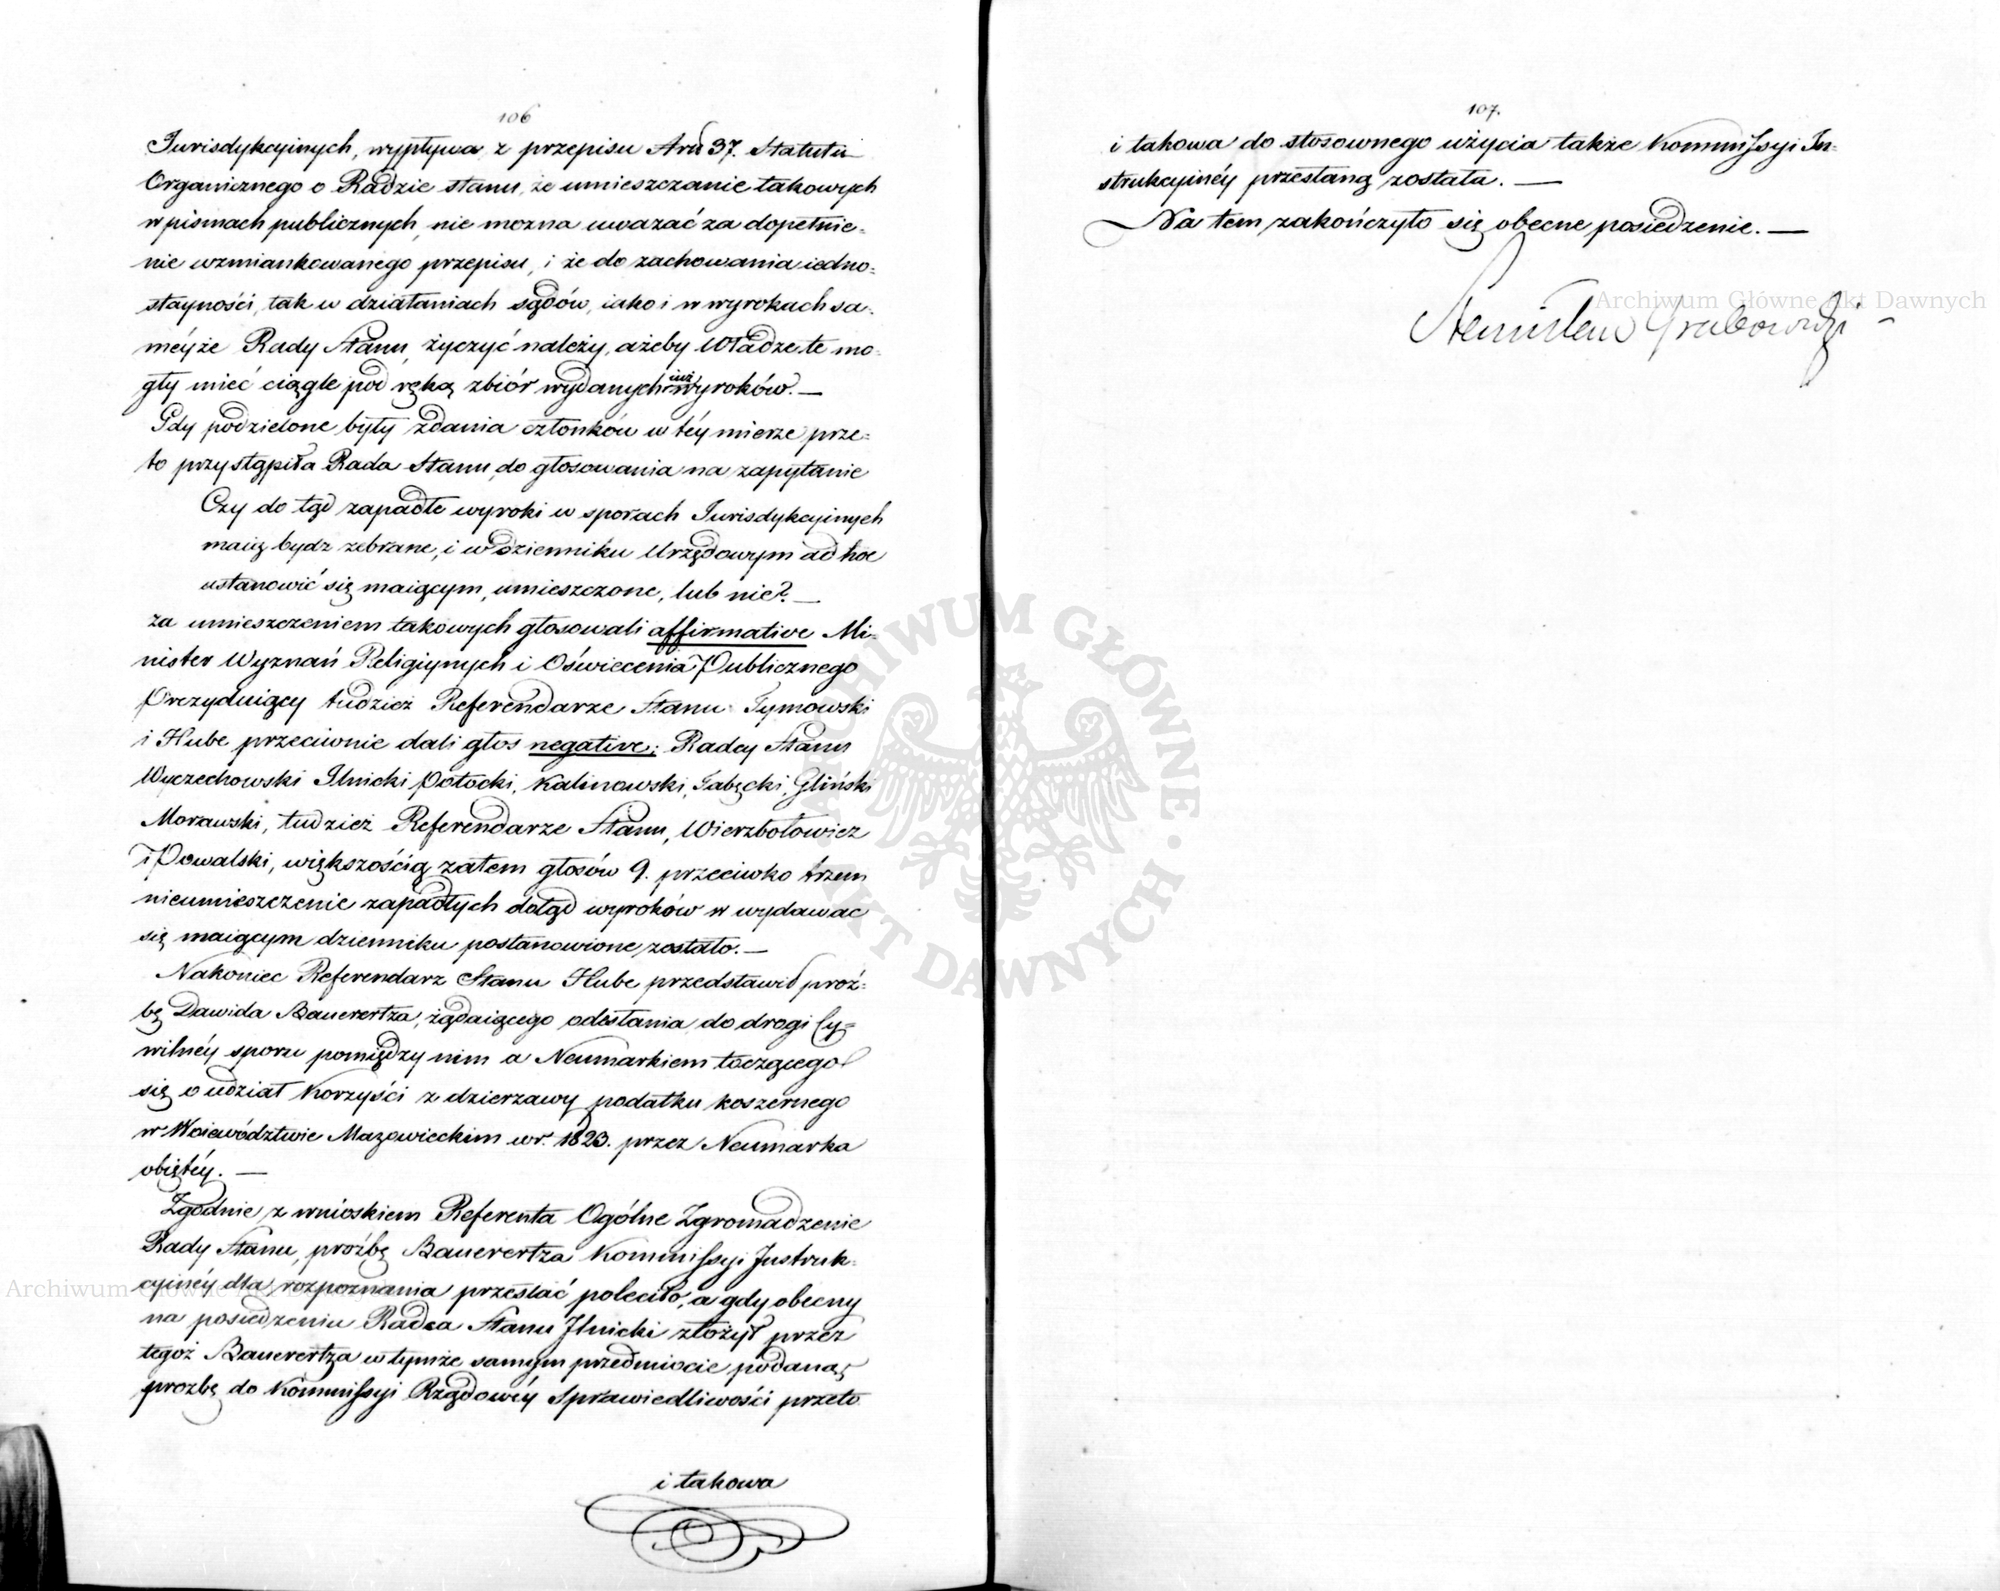 106
Jurisdykcyinych, wypływa z przepisu Artu 37. Statutu
Organicznego o Radzie stanu, że umieszczanie takowych
w pismach publicznych, nie mozna uwazać za dopełnie-
nie wzmiankowanego przepisu, i że do zachowania iedno-
stayności, tak w działaniach sądów, iako i w wyrokach sa-
meyże Rady Stanu, życzyć należy, ażeby Władze te mo-
gły mieć ciągle pod ręką zbiór wydanych iuż wyroków. —
Gdy podzielone były zdania członków w téy mierze prze-
to przystąpiła Rada Stanu do głosowania na zapytanie
Czy do tąd zapadłe wyroki w sporach Jurisdykcyinych
maią bydz zebrane, i w dzienniku Urzędowym ad hoc
ustanowić się maiącym, umieszczone, lub nie? —
za umieszczeniem takowych głosowali affirmative Mi-
nister Wyznań Religiynych i Oświecenia Publicznego
Prezyduiący tudzież Referendarze Stanu Tymowski
i Hube przeciwnie dali głos negative; Radcy Stanu
Wyczechowski Ilnicki Potocki, Kalinowski, Łabęcki, Gliński
Morawski, tudzież Referendarze Stanu, Wierzbołowicz
i Powalski, większością zatem głosów 9. przeciwko trzem
nieumieszczenie zapadłych dotąd wyroków w wydawac
się maiącym dzienniku postanowione zostało. —
Nakoniec Referendarz Stanu Hube przedstawił proź-
bę Dawida Bauerertza, żądaiącego odesłania do drogi Cy-
wilnéy sporu pomiędzy nim a Neumarkiem toczącego
się o udział korzyści z dzierzawy podatku koszernego
w Woiewództwie Mazowieckim w r. 1823. przez Neumarka
obiętéy. —
Zgodnie z wnioskiem Referenta Ogólne Zgromadzenie
Rady Stanu, proźbę Bauerertza Kommissyi Instruk-
cyinéy dla rozpoznania przesłać poleciło, a gdy obecny
na posiedzeniu Radca Stanu Ilnicki złożył przez
tegoż Bauerertza w tymże samym przedmiocie podaną
prozbę do Kommissyi Rządowéy Sprawiedliwości przeto
i takowa
107.
i takowa do stosownego użycia także Kommissyi In-
strukcyinéy przesłaną została. —
Na tem zakończyło się obecne posiedzenie. —
Stanisław Grabowski
Archiwum Główne Akt Dawnych
Archiwum Główne
ARCHIWUM GŁÓWNE AKT DAWNYCH